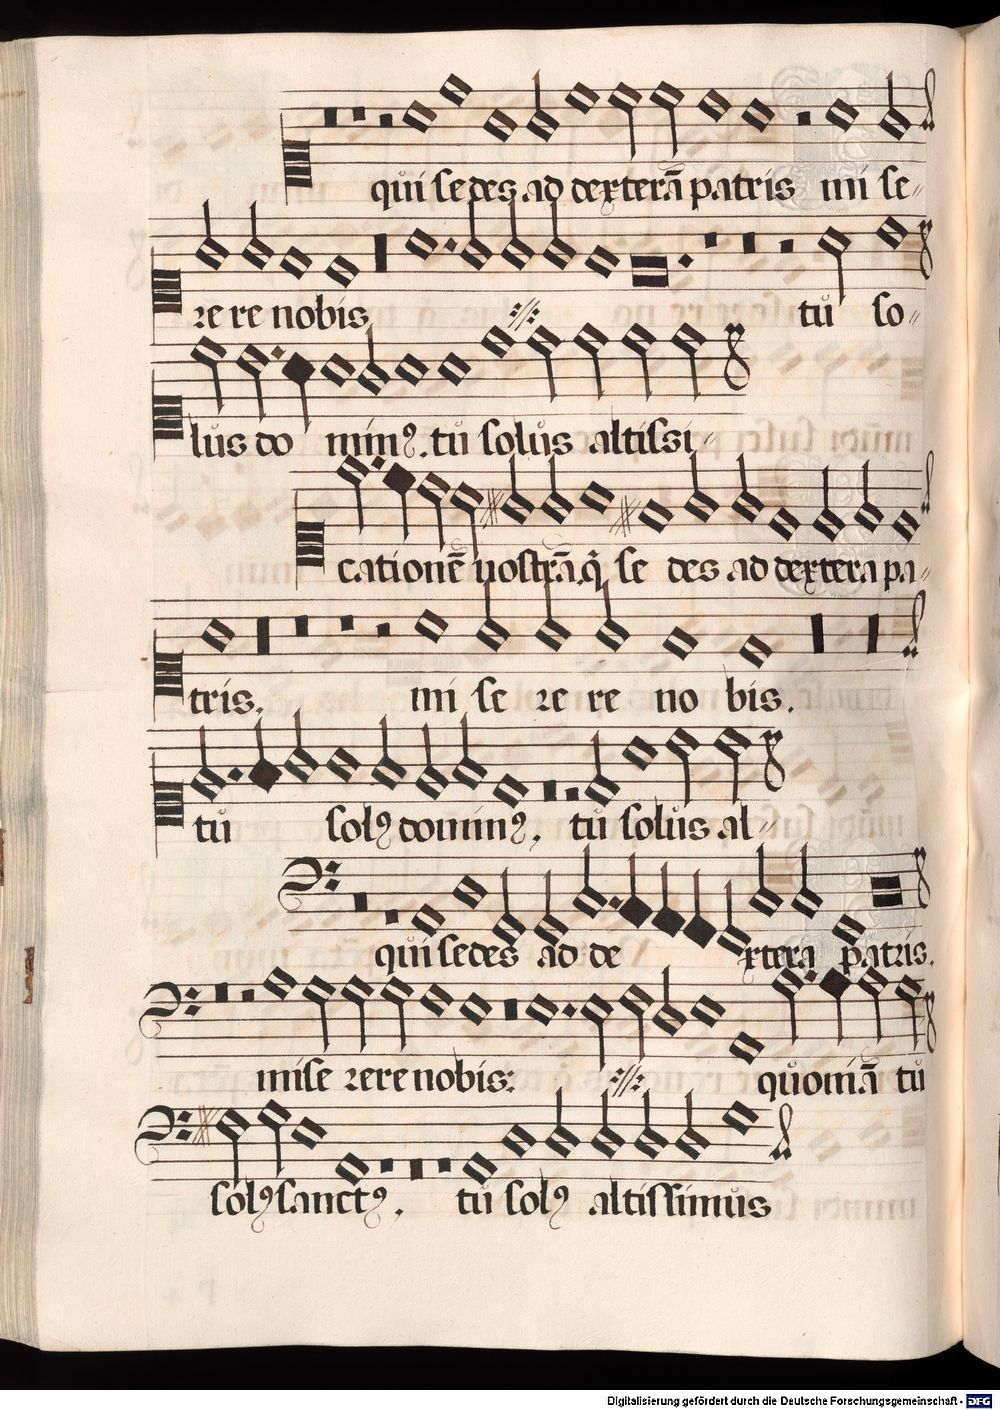 qui sedes ad dexterā patris mi se〃
rere nobis ://: tů so〃
lůs do minꝰ. tů solůs altissi〃
cationē nostrā, q̊ se des ad dextera pa〃
tris. mi se re re no bis.
tů solꝰ dominꝰ. tů solůs al〃
qui sedes ad de xtera patris.
mise rere nobis: :///: quoniā tů
solꝰ sanctꝰ. tů solꝰ altissimůs
Digitalisierung gefördert durch die Deutsche Forschungsgemeinschaft - DFG